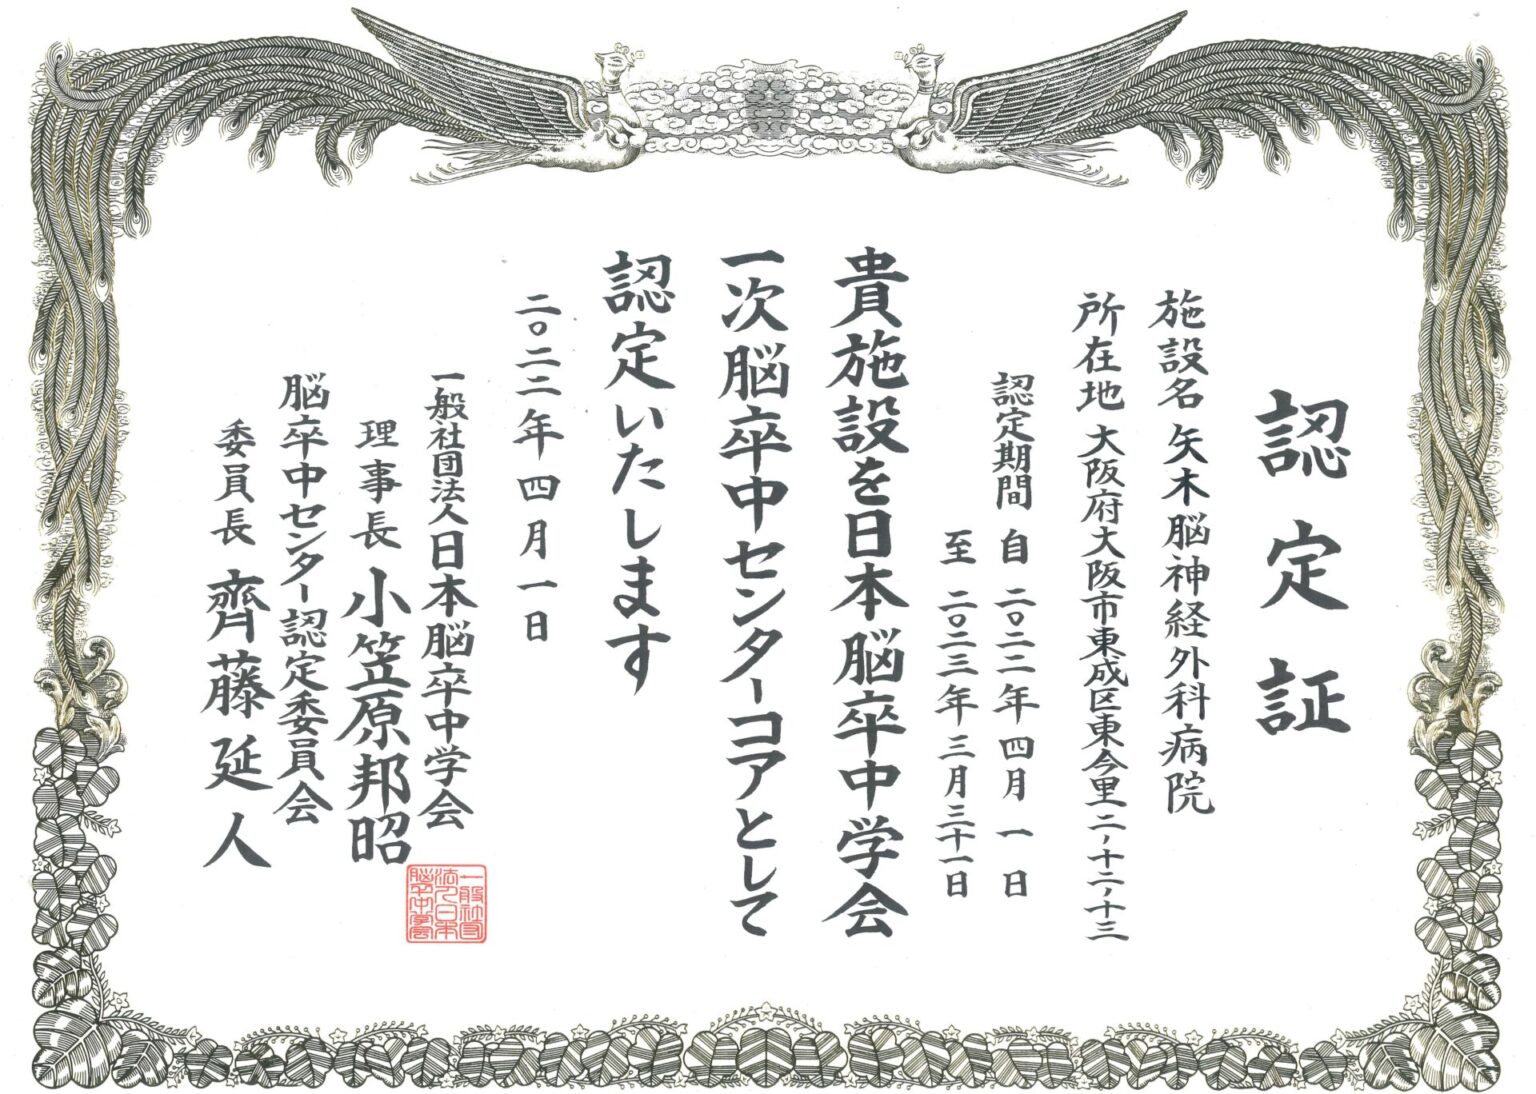 認定証
施設名 矢木脳神経外科病院
所在地 大阪府大阪市東成区東今里二ノ十二ノ十三
認定期間 自 二〇二二年 四月 一日
至 二〇二三年 三月三十一日
貴施設を日本脳卒中学会
一次脳卒中センターコアとして
認定いたします
二〇二二年 四月一日
一般社団法人日本脳卒中学会
理事長 小笠原邦昭
脳卒中センター認定委員会
委員長 齊藤延人
一般社団
法人日本
脳卒中学会